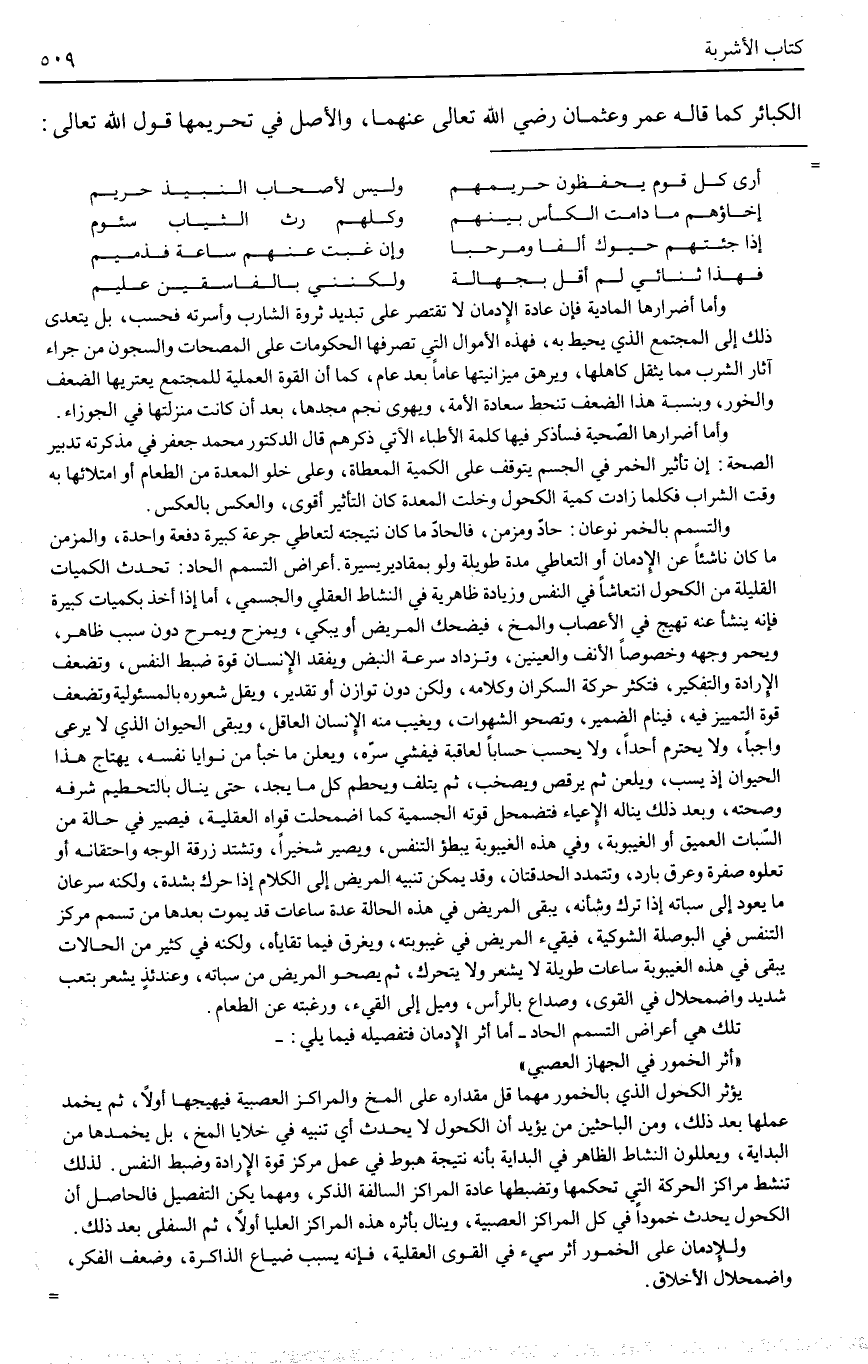 كتاب الأشربة ٥٠٩
الكبائر كما قاله عمر وعثمان رضي الله تعالى عنهما، والأصل في تحريمها قول الله تعالى :
=
أرى كل قوم يحفظون حريمهم وليس لأصحاب النبيذ حريم
إخاؤهم ما دامت الكأس بينهم وكلهم رث الثياب سئوم
إذا جئتهم حيوك ألفا ومرحبا وإن غبت عنهم ساعة فذميم
فهذا ثنائي لم أقل بجهالة ولكنني بالفاسقين عليم
وأما أضرارها المادية فإن عادة الإدمان لا تقتصر على تبديد ثروة الشارب وأسرته فحسب، بل يتعدى
ذلك إلى المجتمع الذي يحيط به، فهذه الأموال التي تصرفها الحكومات على المصحات والسجون من جراء
آثار الشرب مما يثقل كاهلها، ويرهق ميزانيتها عاماً بعد عام، كما أن القوة العملية للمجتمع يعتريها الضعف
والخور، وبنسبة هذا الضعف تنحط سعادة الأمة، ويهوى نجم مجدها، بعد أن كانت منزلتها في الجوزاء.
وأما أضرارها الصّحية فسأذكر فيها كلمة الأطباء الآتي ذكرهم قال الدكتور محمد جعفر في مذكرته تدبير
الصحة: إن تأثير الخمر في الجسم يتوقف على الكمية المعطاة، وعلى خلو المعدة من الطعام أو امتلائها به
وقت الشراب فكلما زادت كمية الكحول وخلت المعدة كان التأثير أقوى، والعكس بالعكس.
والتسمم بالخمر نوعان: حادّ ومزمن، فالحادّ ما كان نتيجته لتعاطي جرعة كبيرة دفعة واحدة، والمزمن
ما كان ناشئاً عن الإدمان أو التعاطي مدة طويلة ولو بمقادير يسيرة. أعراض التسمم الحاد: تحدث الكميات
القليلة من الكحول انتعاشاً في النفس وزيادة ظاهرية في النشاط العقلي والجسمي، أما إذا أخذ بكميات كبيرة
فإنه ينشأ عنه تهيج في الأعصاب والمخ، فيضحك المريض أو يبكي، ويمزح ويمرح دون سبب ظاهر،
ويحمر وجهه وخصوصاً الأنف والعينين، وتزداد سرعة النبض ويفقد الإنسان قوة ضبط النفس، وتضعف
الإرادة والتفكير، فتكثر حركة السكران وكلامه، ولكن دون توازن أو تقدير، ويقل شعوره بالمسئولية وتضعف
قوة التمييز فيه، فينام الضمير، وتصحو الشهوات، ويغيب منه الإنسان العاقل، ويبقى الحيوان الذي لا يرعى
واجباً، ولا يحترم أحداً، ولا يحسب حساباً لعاقبة فيفشي سرّه، ويعلن ما خبأ من نوايا نفسه، يهتاج هذا
الحيوان إذ يسب، ويلعن ثم يرقص ويصخب، ثم يتلف ويحطم كل ما يجد، حتى ينال بالتحطيم شرفه
وصحته، وبعد ذلك يناله الإعياء فتضمحل قوته الجسمية كما اضمحلت قواه العقلية، فيصير في حالة من
السّبات العميق أو الغيبوبة، وفي هذه الغيبوبة يبطؤ التنفس، ويصير شخيراً، وتشتد زرقة الوجه واحتقانه أو
تعلوه صفرة وعرق بارد، وتتمدد الحدقتان، وقد يمكن تنبيه المريض إلى الكلام إذا حرك بشدة، ولكنه سرعان
ما يعود إلى سباته إذا ترك وشأنه، يبقى المريض في هذه الحالة عدة ساعات قد يموت بعدها من تسمم مركز
التنفس في البوصلة الشوكية، فيقيء المريض في غيبوبته، ويغرق فيما تقايأه، ولكنه في كثير من الحالات
يبقى في هذه الغيبوبة ساعات طويلة لا يشعر ولا يتحرك، ثم يصحو المريض من سباته، وعندئذٍ يشعر بتعب
شديد واضمحلال في القوى، وصداع بالرأس، وميل إلى القيء، ورغبته عن الطعام.
تلك هي أعراض التسمم الحاد ـ أما أثر الإدمان فتفصيله فيما يلي: ـ
«أثر الخمور في الجهاز العصبي»
يؤثر الكحول الذي بالخمور مهما قل مقداره على المخ والمراكز العصبية فيهيجها أولاً، ثم يخمد
عملها بعد ذلك، ومن الباحثين من يؤيد أن الكحول لا يحدث أي تنبيه في خلايا المخ، بل يخمدها من
البداية، ويعللون النشاط الظاهر في البداية بأنه نتيجة هبوط في عمل مركز قوة الإرادة وضبط النفس. لذلك
تنشط مراكز الحركة التي تحكمها وتضبطها عادة المراكز السالفة الذكر، ومهما يكن التفصيل فالحاصل أن
الكحول يحدث خموداً في كل المراكز العصبية، وينال بأثره هذه المراكز العليا أولاً، ثم السفلى بعد ذلك.
وللإدمان على الخمور أثر سيء في القوى العقلية، فإنه يسبب ضياع الذاكرة، وضعف الفكر،
واضمحلال الأخلاق.
=